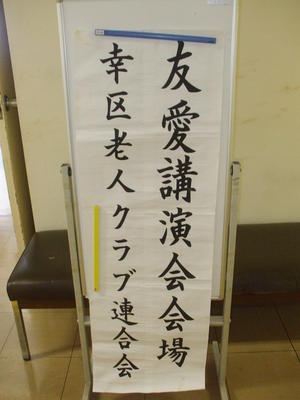 友愛講演会会場
幸区老人クラブ連合会